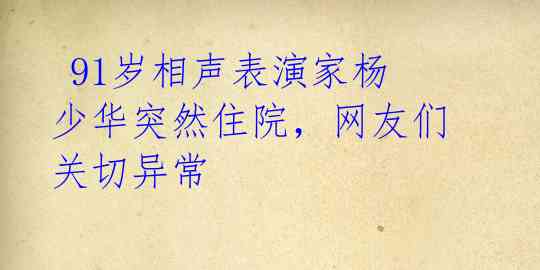 91岁相声表演家杨
少华突然住院，网友们
关切异常